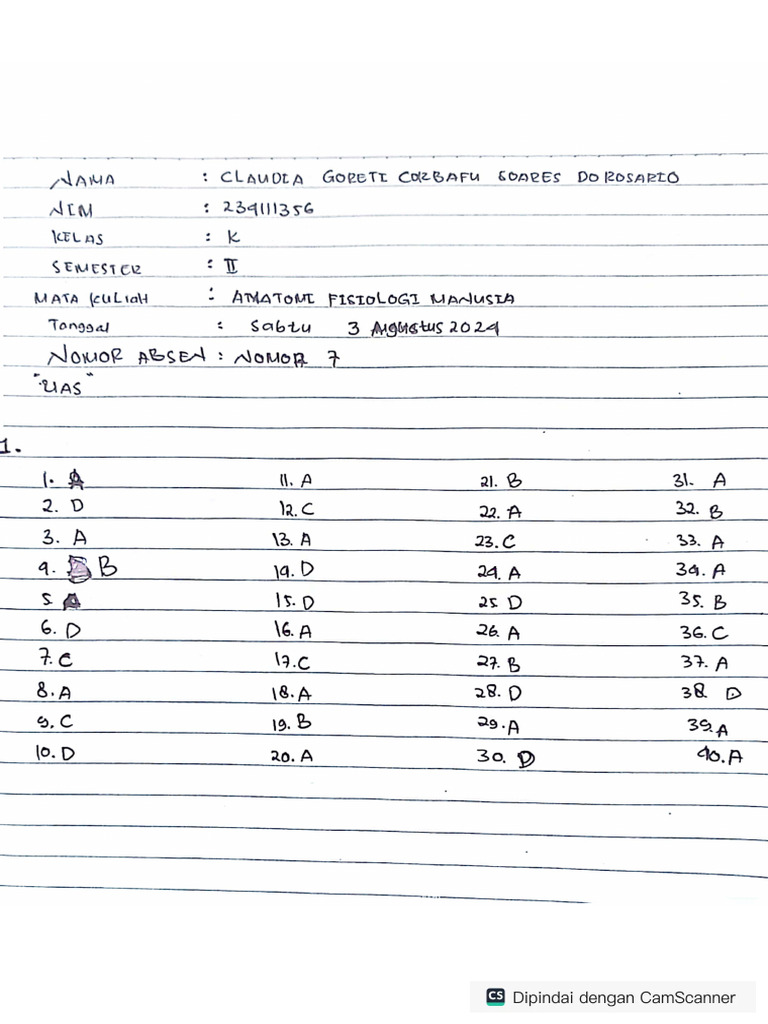 NAMA : CLAUDIA GORETI CORBAFU SOARES DO ROSARIO
NIM : 239111356
KELAS : K
SEMESTER : II
MATA KULIAH : ANATOMI FISIOLOGI MANUSIA
Tanggal : Sabtu 3 Agustus 2024
NOMOR ABSEN : NOMOR 7
"UAS"
1.
1. A 11. A 21. B 31. A
2. D 12. C 22. A 32. B
3. A 13. A 23. C 33. A
4. B 14. D 24. A 34. A
5. A 15. D 25. D 35. B
6. D 16. A 26. A 36. C
7. C 17. C 27. B 37. A
8. A 18. A 28. D 38. D
9. C 19. B 29. A 39. A
10. D 20. A 30. D 40. A
CS Dipindai dengan CamScanner